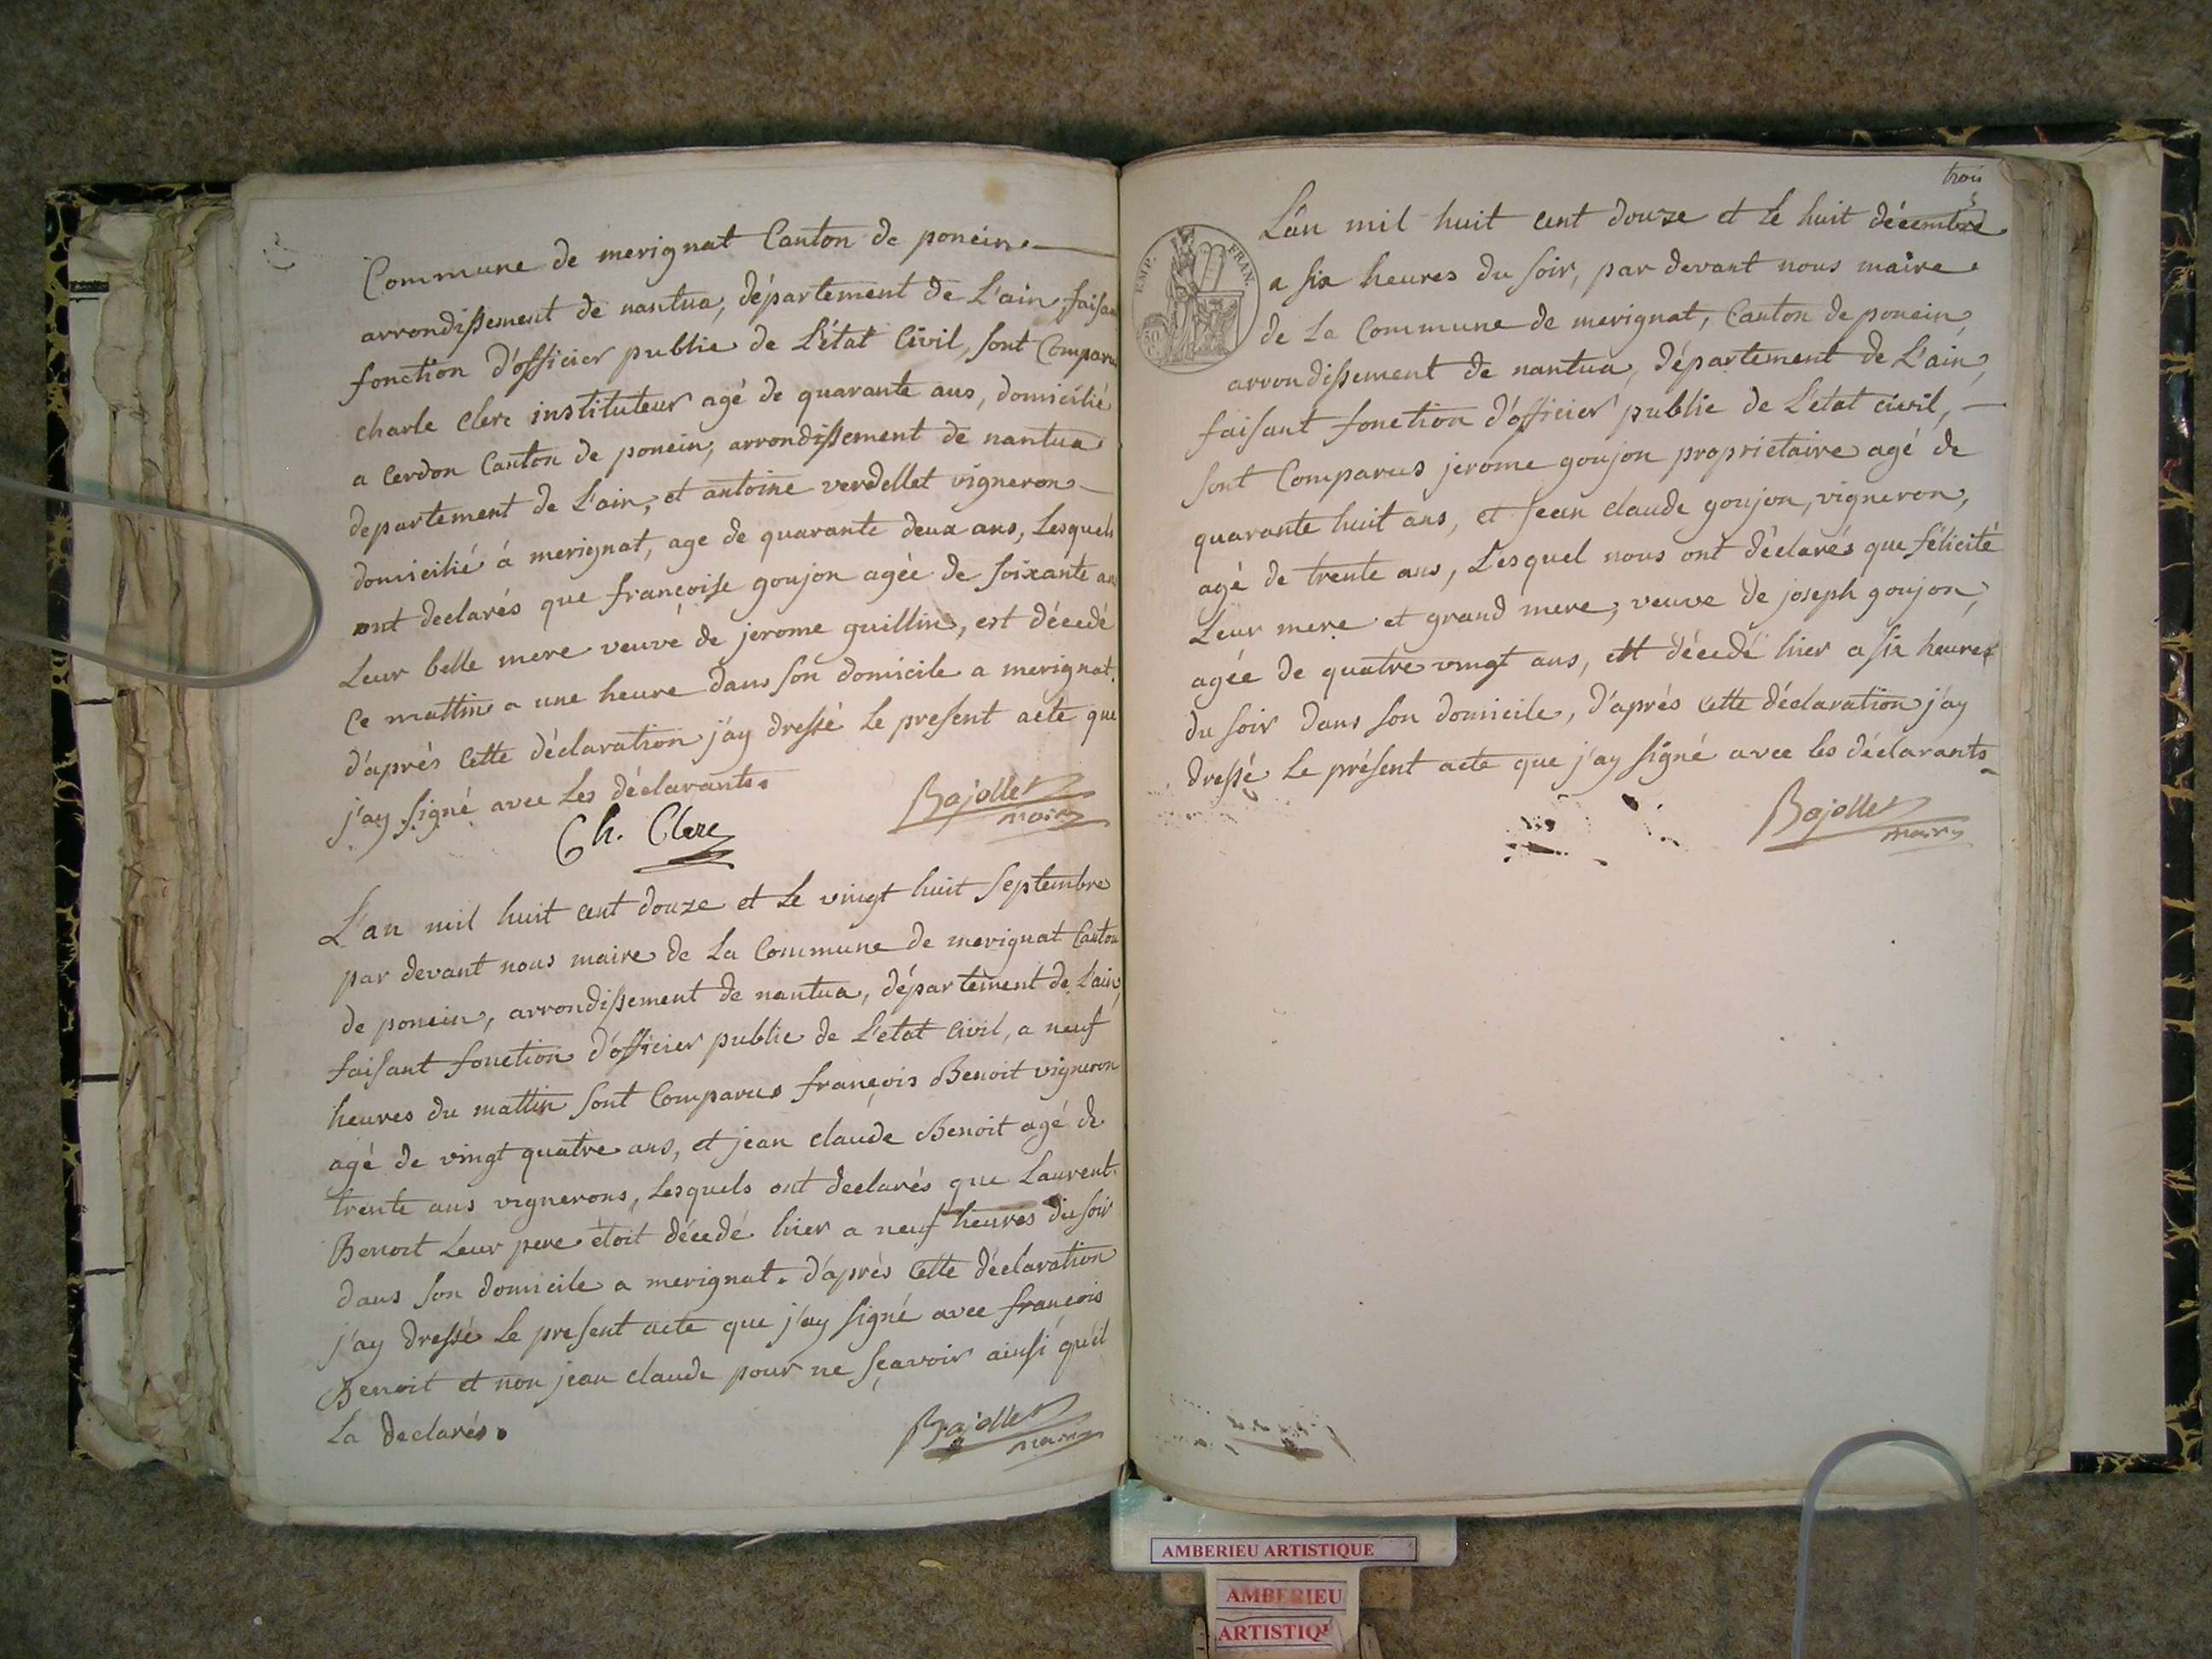 Commune de merignat Canton de poncin
arrondissement de nantua, département de L'ain, faisan
fonction d'officier public de L'état Civil, sont Comparu
charle Clerc instituteur agé de quarante ans, domicilié
a Cerdon Canton de poncin, arrondissement de nantua
departement de L'ain, et antoine verdellet vigneron
domicilié á merignat, age de quarante deux ans, Lesquels
ont declarés que françoise goujon agée de soixante an
Leur belle mere veuve de jerome guillin, est décedé
Ce mattin a une heure dans son domicile a merignat.
d'après Cette déclaration j'ay dressé Le present acte que
j'ay signé avec Les déclarants.
Bajollet
maire
Ch. Clerc
L'an mil huit cent douze et Le vingt huit septembre
par devant nous maire de La Commune de merignat Canton
de poncin, arrondissement de nantua, département de L'ain,
faisant fonction d'officier public de L'etat Civil, a neuf
heures du mattin sont Comparus françois Benoit vigneron
agé de vingt quatre ans, et jean claude Benoit agé de
trente ans vignerons, Lesquels ont declarés que Laurent
Benoit Leur pere étoit décedé hier a neuf heures du soir
dans son domicile a merignat. d'après Cette déclaration
j'ay dressé Le present acte que j'ay signé avec françois
Benoit et non jean claude pour ne sçavoir ainsi qu'il
La declarés.
Bajollet
maire
trois
3
EMP. FRAN.
50
C.
L'an mil huit cent douze et Le huit décembre
a six heures du soir, par devant nous maire
de La Commune de merignat, Canton de poncin,
arrondissement de nantua, département de L'ain,
faisant fonction d'officier public de L'état civil,
sont Comparus jerome goujon propriétaire agé de
quarante huit ans, et jean claude goujon, vigneron,
agé de trente ans, Lesquel nous ont déclarés que félicité
Leur mere et grand mere, veuve de joseph goujon,
agée de quatre vingt ans, est décedé hier a six heures
du soir dans son domicile, d'après Cette déclaration j'ay
dressé Le présent acte que j'ay signé avec les déclarants
Bajollet
maire
AMBERIEU ARTISTIQUE
AMBERIEU
ARTISTIQU